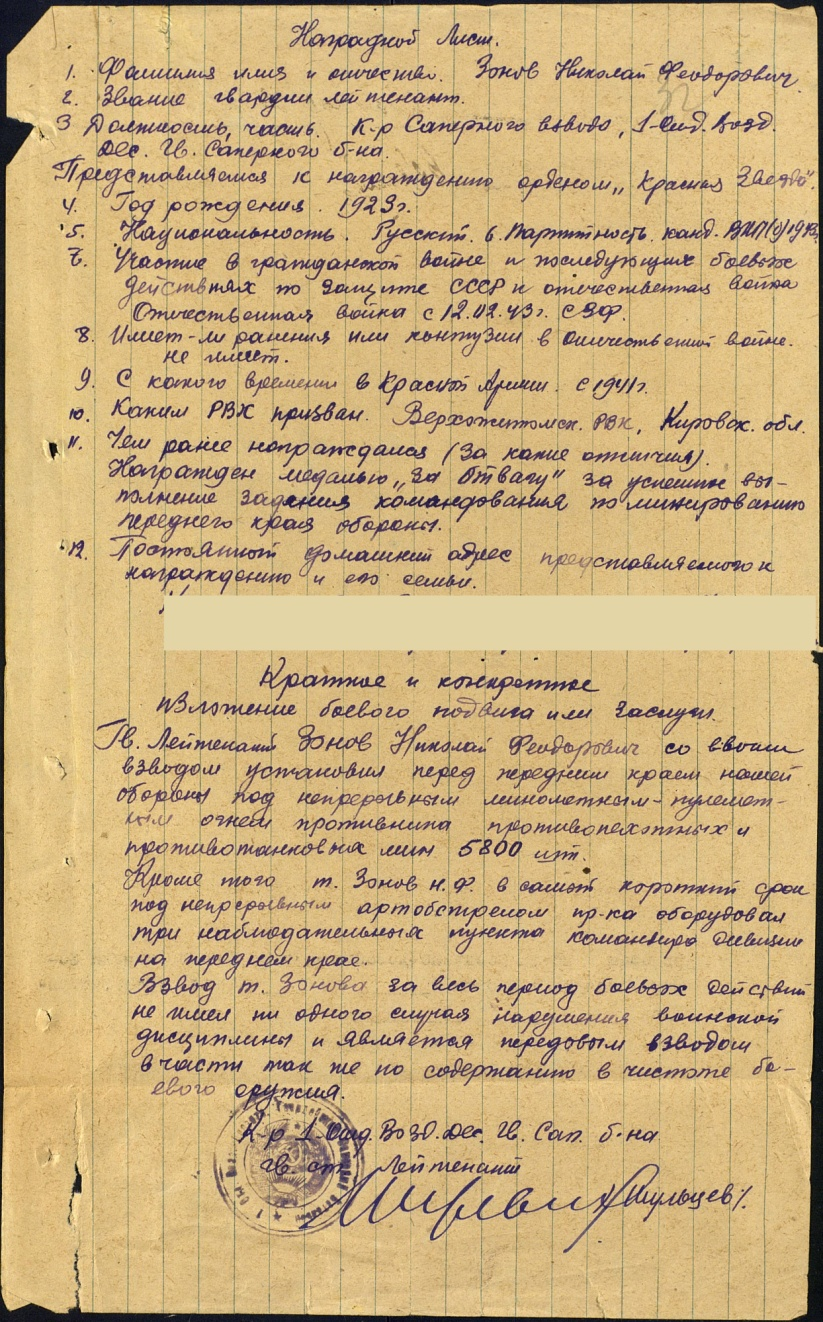 Наградной Лист.
1. Фамилия имя и отчество. Зонов Николай Феодорович.
2. Звание гвардии лейтенант.
3 Должность, часть. К-р Саперного взвода, 1-Отд. Возд.
Дес. Гв. Саперного б-на.
Представляется к награждению орденом „Красная Звезда".
4. Год рождения. 1923г.
5. Национальность. Русский. 6. Партийность. канд. ВКП(б) 1943
7. Участие в гражданской войне и последующих боевых
действиях по защите СССР и отечественная война
Отечественная война с 12.02.43г. СЗФ.
8. Имеет-ли ранения или контузии в отечественной войне.
не имеет.
9. С какого времени в Красной Армии. с 1941г.
10. Каким РВК призван. РВК, Кировск. обл.
11. Чем ранее награждался (за какие отличия).
Награжден медалью „За Отвагу" за успешное вы-
полнение задания командования по минированию
переднего края обороны.
12. Постоянный домашний адрес представляемого к
награждению и его семьи.
Краткое и конкретное
изложение боевого подвига или заслуги.
Гв. Лейтенант Зонов Николай Феодорович со своим
взводом установил перед передним краем нашей
обороны под непрерывным минометным-пулемет-
ным огнем противника противопехотных и
противотанковых мин 5800 шт.
Кроме того т. Зонов Н.Ф. в самый короткий срок
под непрерывным артобстрелом пр-ка оборудовал
три наблюдательных пункта командира дивизии
на переднем крае.
Взвод т. Зонова за весь период боевых действий
не имел ни одного случая нарушения воинской
дисциплины и является передовым взводом
в части так же по содержанию в чистоте бо-
евого оружия.
К-р 1 Отд. Возд. Дес. Гв. Сап. б-на
гв. ст. Лейтенант